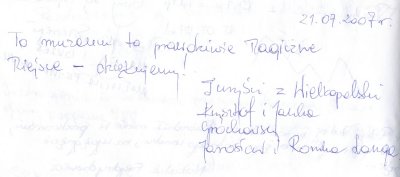 21.07.2007 r.
To muzeum to prawdziwie Magiczne
Miejsce – dziękujemy!
Turyści z Wielkopolski
Krzysztof i Janka
Grochowscy
Jarosław i Romka